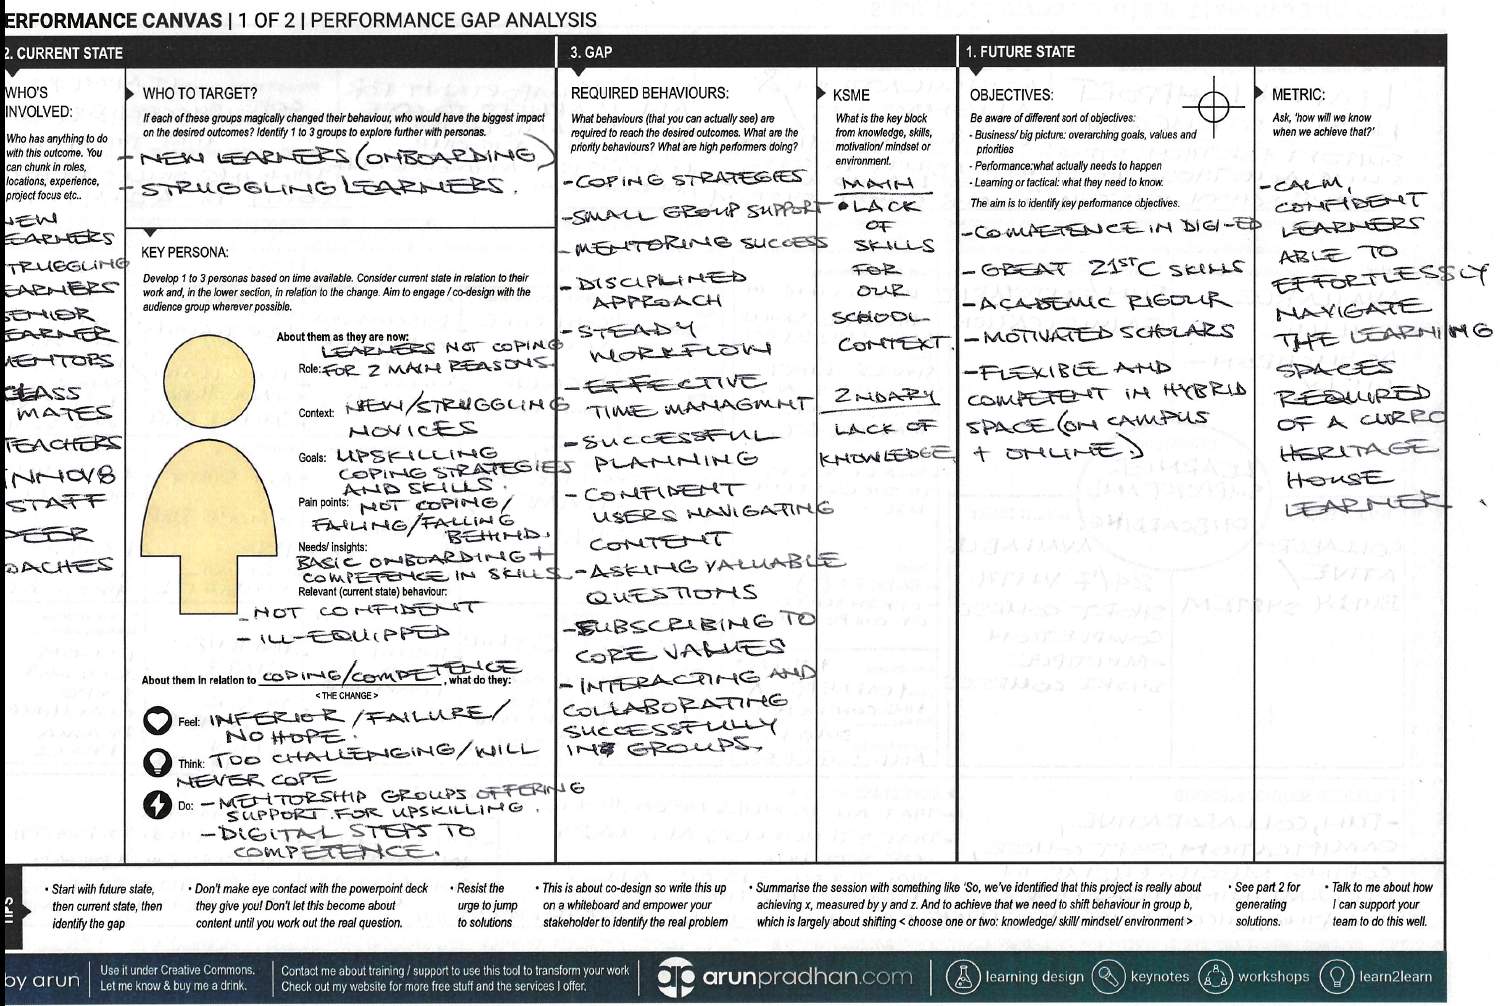 ERFORMANCE CANVAS | 1 OF 2 | PERFORMANCE GAP ANALYSIS
2. CURRENT STATE
WHO'S
INVOLVED:
Who has anything to do
with this outcome. You
can chunk in roles,
locations, experience,
project focus etc..
NEW
LEARNERS
STRUGGLING
LEARNERS
SENIOR
LEARNER
MENTORS
CLASS
MATES
TEACHERS
INNOV8
STAFF
PEER
OACHES
WHO TO TARGET?
If each of these groups magically changed their behaviour, who would have the biggest impact
on the desired outcomes? Identify 1 to 3 groups to explore further with personas.
- NEW LEARNERS (ONBOARDING)
- STRUGGLING LEARNERS.
KEY PERSONA:
Develop 1 to 3 personas based on time available. Consider current state in relation to their
work and, in the lower section, in relation to the change. Aim to engage / co-design with the
audience group wherever possible.
About them as they are now:
LEARNERS NOT COPING
Role: FOR 2 MAIN REASONS.
Context: NEW/STRUGGLING
NOVICES
Goals: UPSKILLING
COPING STRATEGIES
AND SKILLS.
Pain points: NOT COPING/
FAILING/FALLING
BEHIND.
Needs/ insights:
BASIC ONBOARDING +
COMPETENCE IN SKILLS
Relevant (current state) behaviour:
- NOT CONFIDENT
- ILL-EQUIPPED
About them in relation to COPING/COMPETENCE, what do they:
< THE CHANGE >
Feel: INFERIOR/FAILURE/
NO HOPE.
Think: TOO CHALLENGING/WILL
NEVER COPE
Do: - MENTORSHIP GROUPS OFFERING
SUPPORT FOR UPSKILLING.
- DIGITAL STEPS TO
COMPETENCE.
3. GAP
REQUIRED BEHAVIOURS:
What behaviours (that you can actually see) are
required to reach the desired outcomes. What are the
priority behaviours? What are high performers doing?
- COPING STRATEGIES
- SMALL GROUP SUPPORT
- MENTORING SUCCESS
- DISCIPLINED
APPROACH
- STEADY
WORKFLOW
- EFFECTIVE
TIME MANAGMNT
- SUCCESSFUL
PLANNING
- CONFIDENT
USERS NAVIGATING
CONTENT
- ASKING VALUABLE
QUESTIONS
- SUBSCRIBING TO
CORE VALUES
- INTERACTING AND
COLLABORATING
SUCCESSFULLY
IN GROUPS.
KSME
What is the key block
from knowledge, skills,
motivation/ mindset or
environment.
MAIN
• LACK
OF
SKILLS
FOR
OUR
SCHOOL
CONTEXT.
2NDARY
LACK OF
KNOWLEDGE
1. FUTURE STATE
OBJECTIVES:
Be aware of different sort of objectives:
- Business/ big picture: overarching goals, values and
priorities
- Performance:what actually needs to happen
- Learning or tactical: what they need to know.
The aim is to identify key performance objectives.
- COMPETENCE IN DIGI-ED
- GREAT 21ST C SKILLS
- ACADEMIC RIGOUR
- MOTIVATED SCHOLARS
- FLEXIBLE AND
COMPETENT IN HYBRID
SPACE (ON CAMPUS
+ ONLINE)
METRIC:
Ask, 'how will we know
when we achieve that?'
- CALM,
CONFIDENT
LEARNERS
ABLE TO
EFFORTLESSLY
NAVIGATE
THE LEARNING
SPACES
REQUIRED
OF A CURRO
HERITAGE
HOUSE
LEARNER.
• Start with future state,
then current state, then
identify the gap
• Don't make eye contact with the powerpoint deck
they give you! Don't let this become about
content until you work out the real question.
• Resist the
urge to jump
to solutions
• This is about co-design so write this up
on a whiteboard and empower your
stakeholder to identify the real problem
• Summarise the session with something like 'So, we've identified that this project is really about
achieving x, measured by y and z. And to achieve that we need to shift behaviour in group b,
which is largely about shifting < choose one or two: knowledge/ skill/ mindset/ environment >
• See part 2 for
generating
solutions.
• Talk to me about how
I can support your
team to do this well.
by arun
Use it under Creative Commons.
Let me know & buy me a drink.
Contact me about training / support to use this tool to transform your work
Check out my website for more free stuff and the services I offer.
arunpradhan.com
learning design
keynotes
workshops
learn2learn